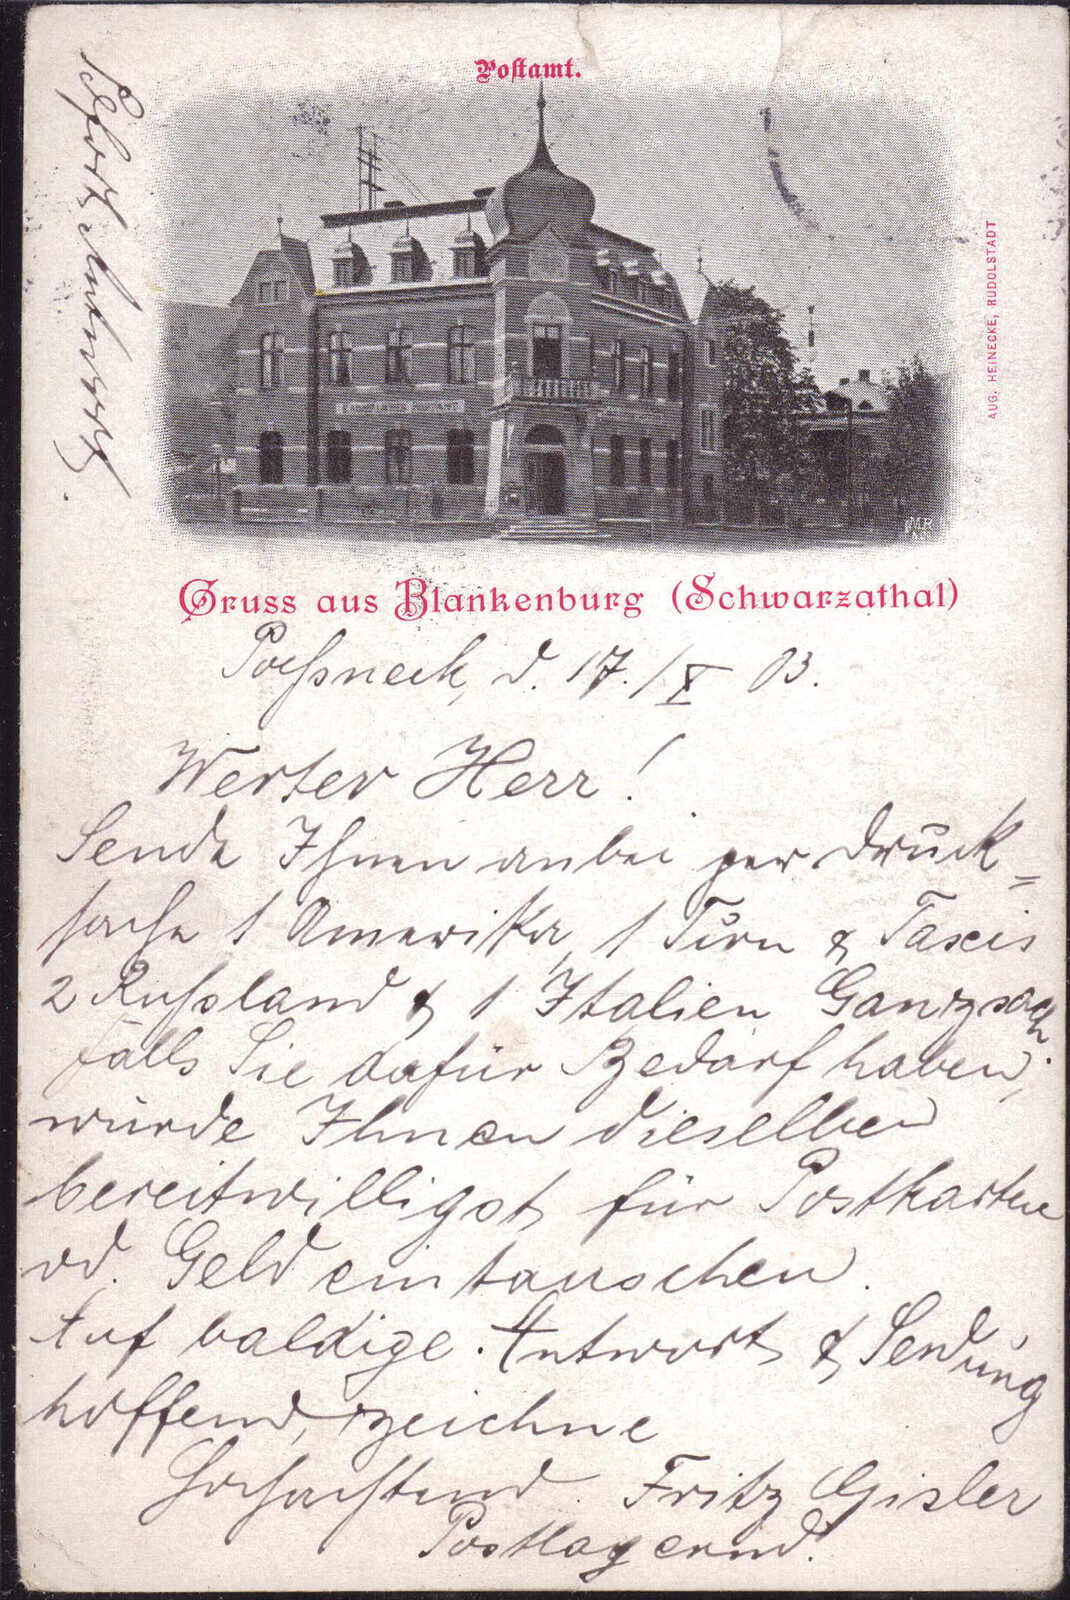 Postamt.
KAISERLICHES POSTAMT
AUG. HEINECKE, RUDOLSTADT
Gruss aus Blankenburg (Schwarzathal)
Poessneck, d. 17./X 03.
Werter Herr!
Sende Ihnen anbei per Druck=
sache 1 Amerika, 1 Turn & Taxis
2 Russland & 1 Italien Ganzsach.
falls Sie dafür Bedarf haben,
würde Ihnen dieselben
bereitwilligst für Postkarten
od. Geld eintauschen.
Auf baldige Antwort & Sendung
hoffend, zeichne
Hochachtend Fritz Gisler
Postlagernd.
Sofort Antwort.